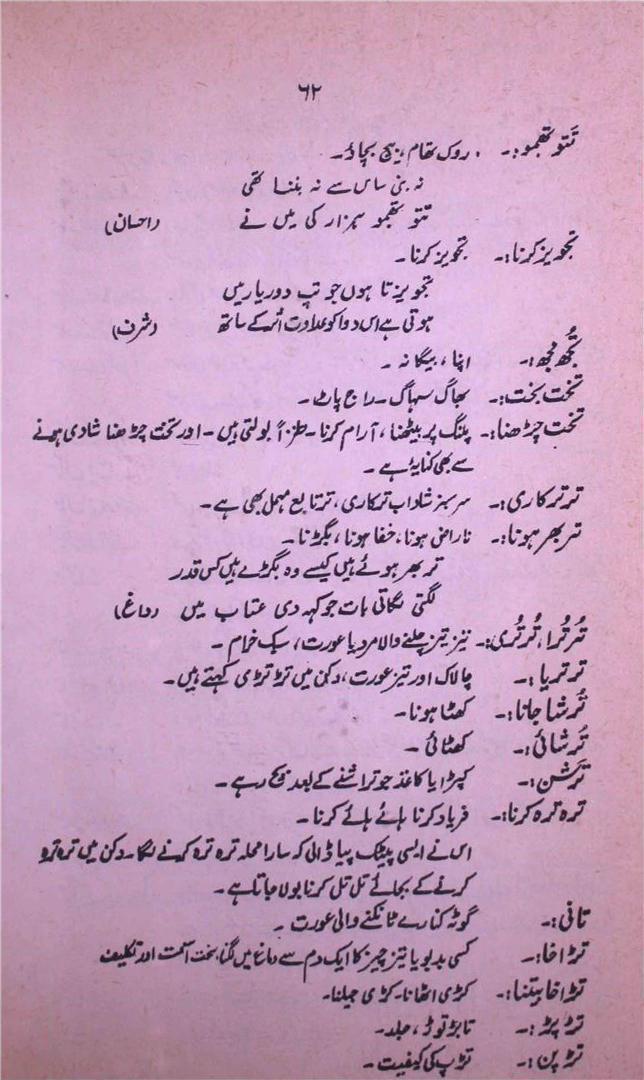 ۶۲
تَتو تھمبو:۔ روک تھام، بیچ بچاؤ۔
نہ بنی ساس سے نہ بننا تھی
تتو تھمبو ہزار کی میں نے (احسان)
تجویز کرنا:۔ تجویز کرنا۔
تجویز تا ہوں جو تپِ دوریار میں
ہوتی ہے اس دوا کو علاوت اثر کے ساتھ (شرف)
تُجھ مُجھ:۔ اپنا، بیگانہ۔
تخت بخت:۔ بھاگ سہاگ۔ راج پاٹ۔
تخت چڑھنا:۔ پلنگ پر بیٹھنا، آرام کرنا۔ طنزاً بولتی ہیں۔ اور تخت چڑھنا شادی ہونے
سے بھی کنایہ ہے۔
تر ترکاری:۔ سر سبز شاداب ترکاری، تر تابع مہمل بھی ہے۔
تر بھر ہونا:۔ ناراض ہونا، خفا ہونا، بگڑنا۔
تر بھر ہوئے ہیں کیسے وہ بگڑے ہیں کس قدر
لگتی لگاتی بات جو کہہ دی عتاب میں (داغ)
تُرتُرا، تُرتُری:۔ تیز تیز چلنے والا مرد یا عورت، سبک خرام۔
ترتریا:۔ چالاک اور تیز عورت، دکن میں تڑتڑی کہتے ہیں۔
تُرشا جانا:۔ کھٹا ہونا۔
تُرشائی:۔ کھٹائی۔
تَرشن:۔ کپڑا یا کاغذ جو تراشنے کے بعد بچ رہے۔
ترہ ترہ کرنا:۔ فریاد کرنا ہائے ہائے کرنا۔
اس نے ایسی پیٹک پیا ڈالی کہ سارا محلہ ترہ ترہ کرنے لگا۔ دکن میں ترہ ترہ
کرنے کے بجائے تل تل کرنا بولا جاتا ہے۔
تافی:۔ گوٹہ کنارے ٹانکنے والی عورت۔
تڑاخا:۔ کسی بدبو یا تیز چیز کا ایک دم سے دماغ میں لگنا، سخت آفت اور تکلیف
تڑاخا بیتنا:۔ کڑی اٹھانا۔ کڑی جھیلنا۔
تڑ پڑ:۔ تابڑ توڑ، جلد۔
تڑپن:۔ تڑپ کی کیفیت۔